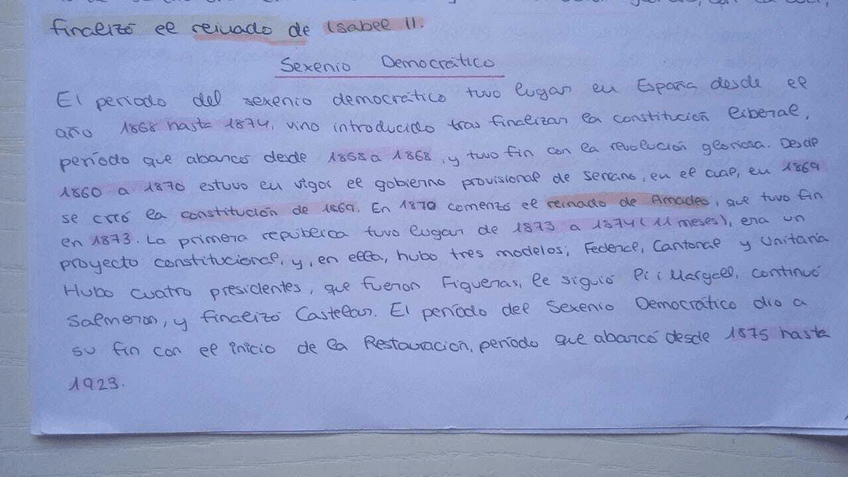 finalizó el reinado de Isabel II.
Sexenio Democrático
El período del sexenio democrático tuvo lugar en España desde el
año 1868 hasta 1874, vino introducido tras finalizar la constitución liberal,
período que abarcó desde 1868 a 1868, y tuvo fin con la revolución gloriosa. Desde
1860 a 1870 estuvo en vigor el gobierno provisional de Serrano, en el cual, en 1869
se creó la constitución de 1869. En 1870 comenzó el reinado de Amadeo, que tuvo fin
en 1873. La primera república tuvo lugar de 1873 a 1874 (11 meses), era un
proyecto constitucional, y, en ello, hubo tres modelos; Federal, Cantonal y Unitaria
Hubo cuatro presidentes, que fueron Figueras, le siguió Pi i Margall, continuó
Salmerón, y finalizó Castelar. El período del Sexenio Democrático dio a
su fin con el inicio de la Restauración, período que abarcó desde 1875 hasta
1923.